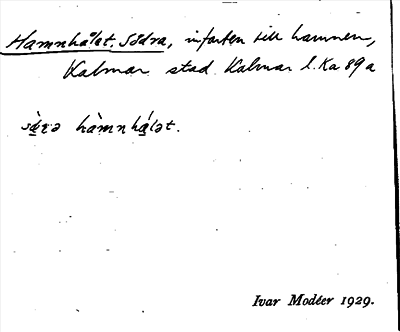 Hamnhålet, Södra, infarten till hamnen,
Kalmar stad Kalmar l. Ka 89 a
sø̀rə hàmnhálət.
Ivar Modéer 1929.